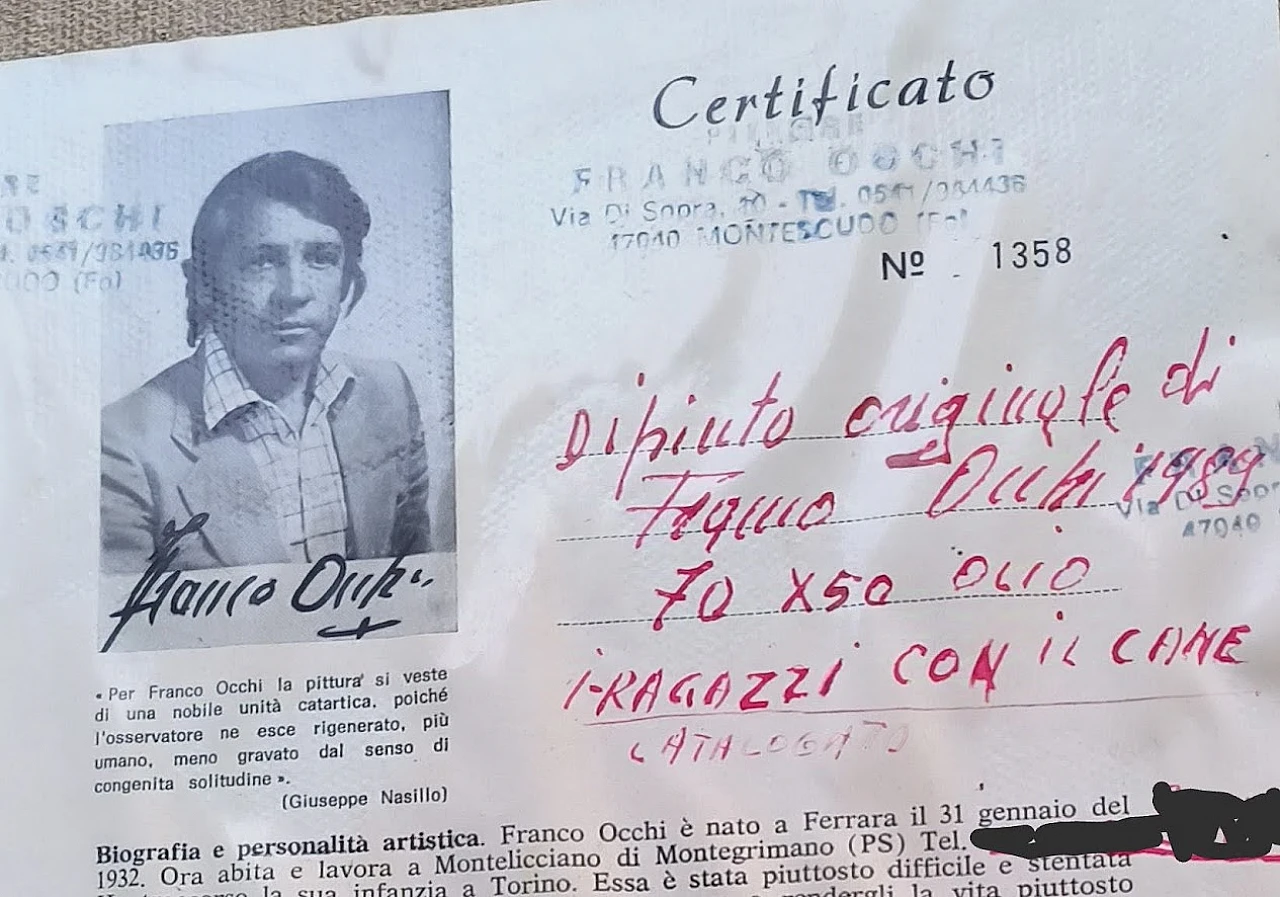 Certificato
PITTORE
FRANCO OCCHI
Via Di Sopra, 10 - Tel. 0541/984436
47040 MONTESCUDO (Fo)
Nº 1358
OCCHI
0541/984436
(Fo)
Dipinto originale di
Franco Occhi 1989
Via Di Sopr
47040
70 x 50 OLIO
I-RAGAZZI CON IL CANE
CATALOGATO
Franco Occhi
« Per Franco Occhi la pittura si veste
di una nobile unità catartica, poiché
l'osservatore ne esce rigenerato, più
umano, meno gravato dal senso di
congenita solitudine ».
(Giuseppe Nasillo)
Biografia e personalità artistica. Franco Occhi è nato a Ferrara il 31 gennaio del
1932. Ora abita e lavora a Montelicciano di Montegrimano (PS) Tel.
la sua infanzia a Torino. Essa è stata piuttosto difficile e stentata
rendergli la vita piuttosto